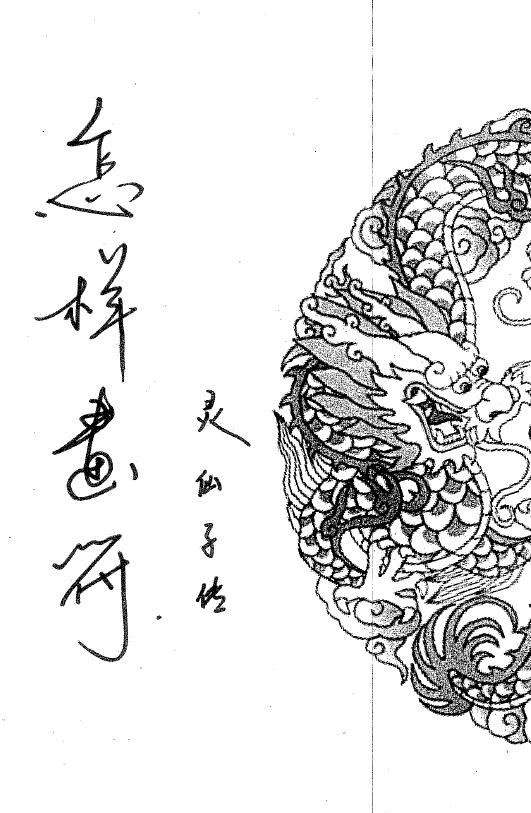 怎样画符
灵仙子传